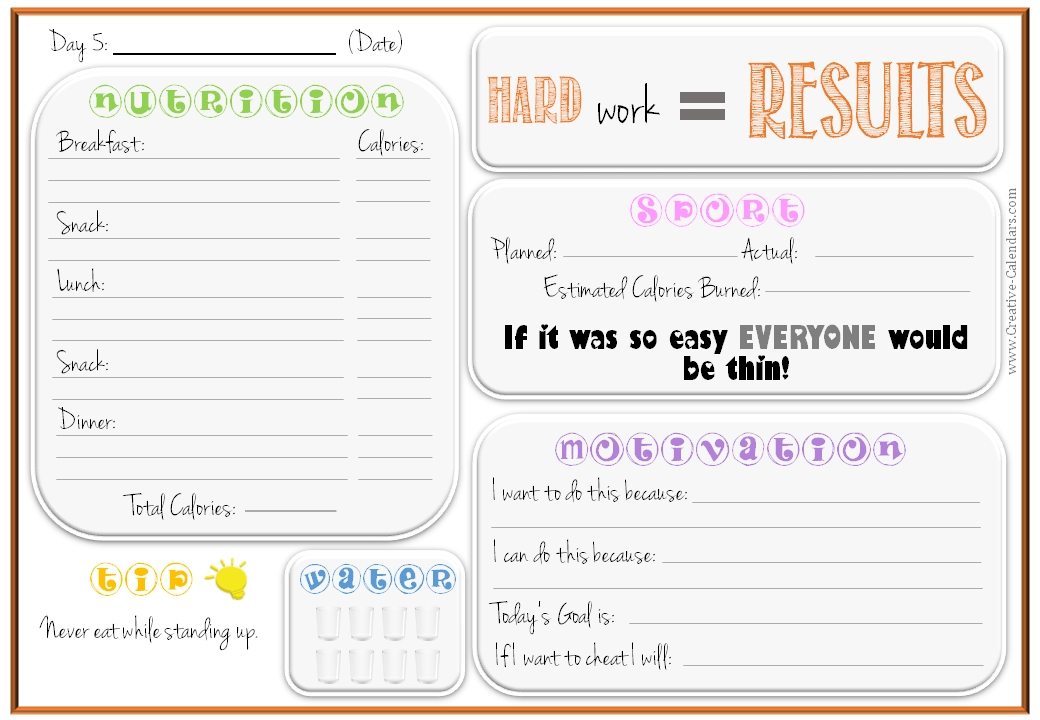 Day 5: ____________________ (Date)
nutrition
Breakfast: Calories:
Snack:
Lunch:
Snack:
Dinner:
Total Calories: __________
tip
Never eat while standing up.
water
HARD work = RESULTS
SPORT
Planned: ____________________ Actual: ____________________
Estimated Calories Burned: ____________________
If it was so easy EVERYONE would
be thin!
motivation
I want to do this because: ____________________
I can do this because: ____________________
Today's Goal is: ____________________
If I want to cheat I will: ____________________
www.Creative-Calendars.com